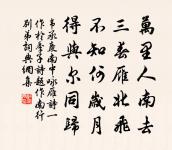 萬里人南去
三春雁北飛
不知何歲月
得與尔同歸
韋承慶南中咏雁詩一
作於季子詩題作南行
别弟詞典網集